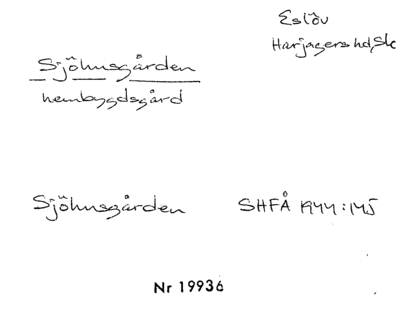 Eslöv
Harjagers hd, Sk
Sjöhusgården
hembygdsgård
Sjöhusgården SHFÅ 1944:145
Nr 19936